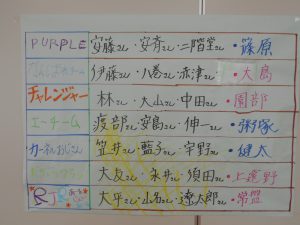 PURPLE 安藤さん・安斉さん・二階堂さん・篠原
伊藤さん・八巻さん・赤津さん・大島
チャレンジャー 林さん・大山さん・中田さん・園部
エーチーム 渡部さん・安島さん・伸一さん・粥塚
カーネルおじさん 笠井さん・藍子さん・宇野さん・健太
大友さん・永井さん・須田さん・上遠野
RJR 大平さん・山名さん・遼太郎さん・常盤